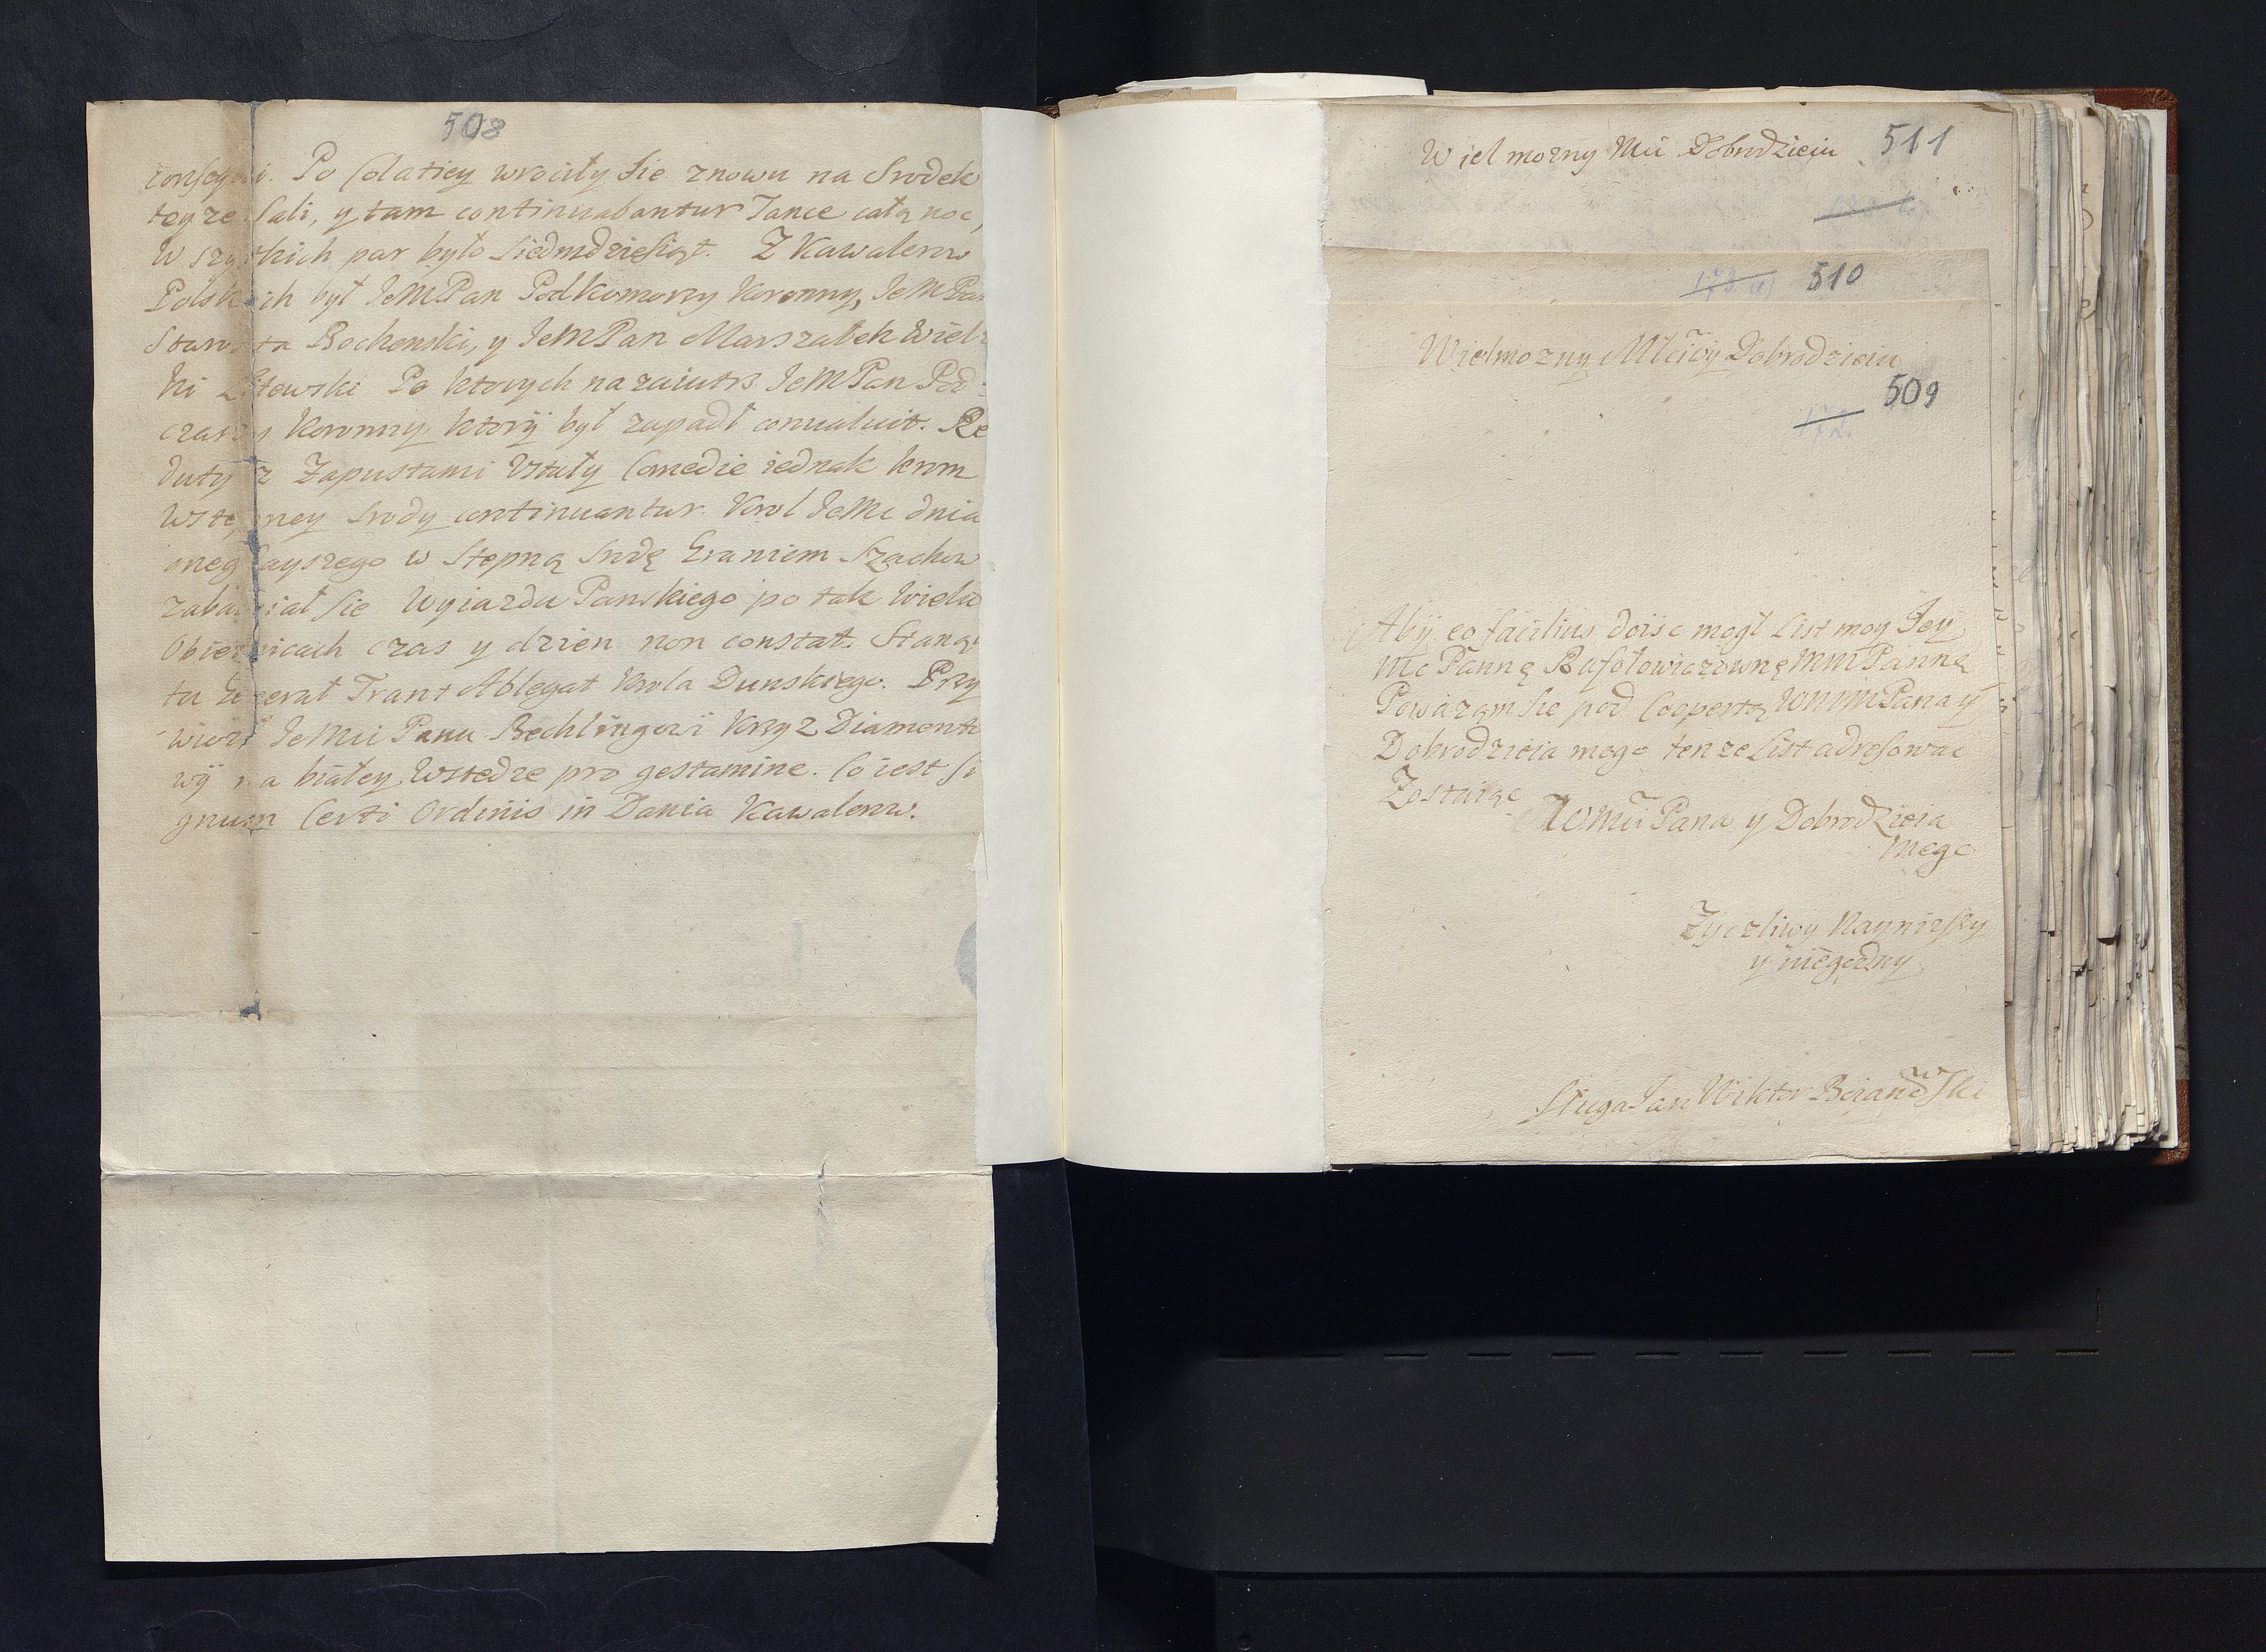 508
Po Colatiey wrociły Sie znowu na Srodek
teyze Sali, y tam continuabantur Tance całą noc,
Wszystkich par było Siedmdziesiąt. Z Kawalerow
Polskich był JeMPan Podkomorzy Koronny, JeMPan
Starosta Bochenski, y JeMPan Marszałek Wiel
ki Litewski Po ktorych nazaiutrz JeMPan Pod
czaszy Koronny ktorÿ był zapadł conualuit. Re
duty z Zapustami Ustały Comedie iednak
Wstępney Srody continuantur. Krol JeMc dnia
onegdayszego w Stępną Srodę Graniem Szachow
zabawiał Sie Wyiazdu Panskiego po tak Wielu
Obietnicach czas y dzien non constat. Stanął
tu Generał Trant Ablegat Krola Dunskiego. Przy
wiozł JeMci Panu Bechlingowi Krzyz Diamento
wÿ na białey Wstedze pro gestamine. Co iest Si
gnum Certi Ordinis in Dania Kawalerow.
Wielmozny Mci Dobrodzieiu 511
510
Wielmozny Mlciwy Dobrodzieiu
509
172.
Abÿ eo facilius doisc mogł List moy Jey
Mc Pannę Rusołowiczownę MM Pannę
Powazam Sie pod Coopertą WMMPana y
Dobrodzieia mego tenze List adresowac
Zostaiąc
WMci Pana y Dobrodzieia
Mego
Zyczliwy Naynizszy
y niegodny
Sługa Jan Wiktor Boianowski